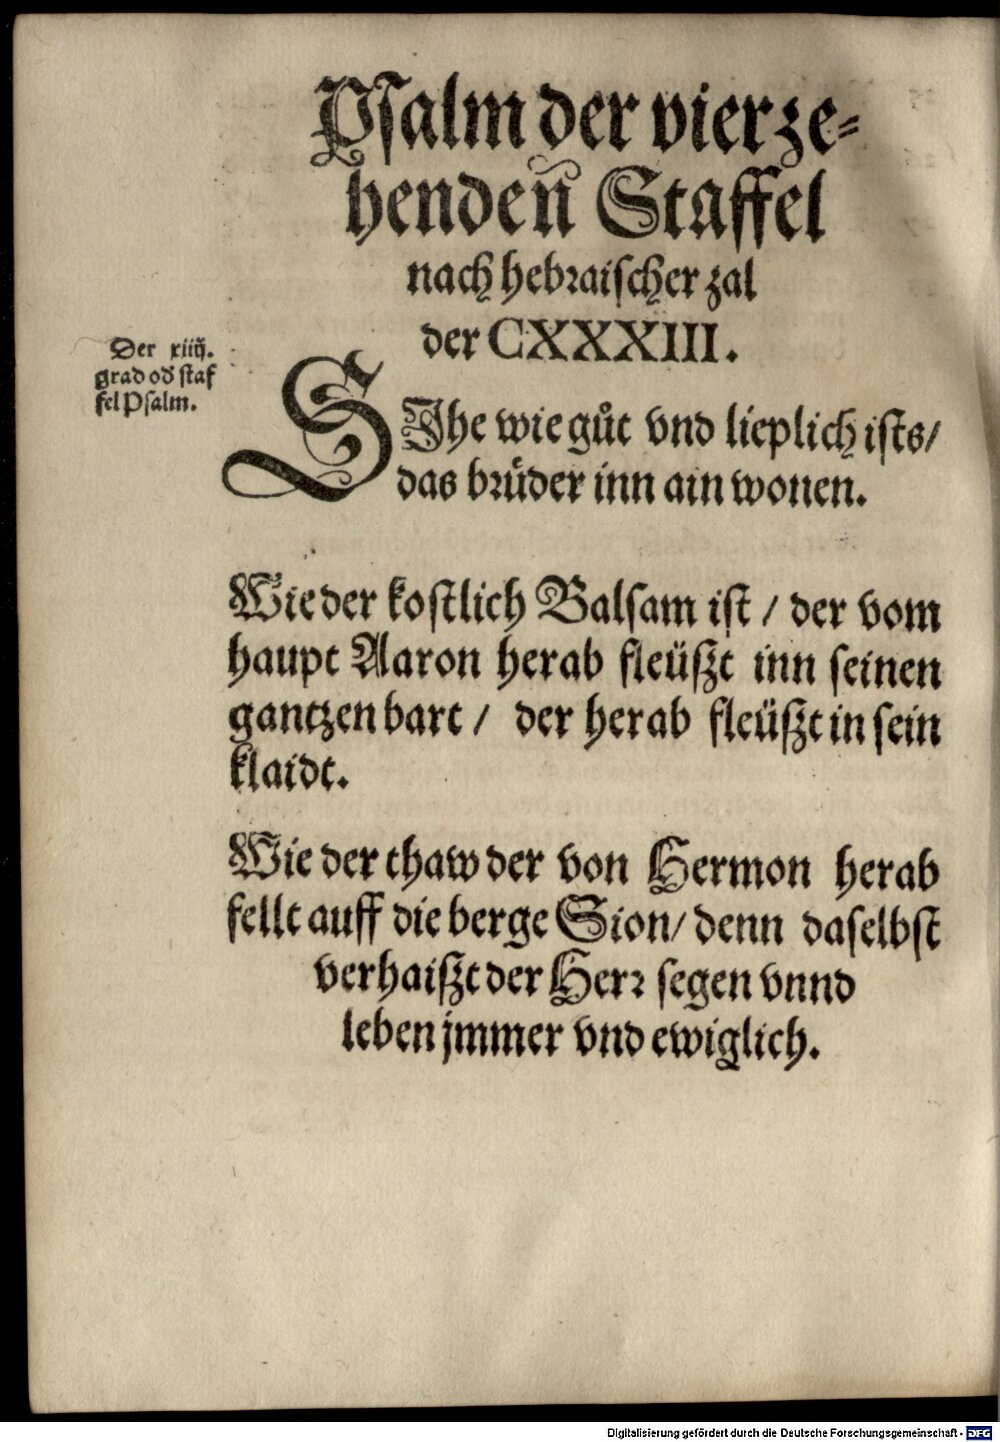 Psalm der vierze-
henden̄ Staffel
nach hebraischer zal
der CXXXIII.
Der xiiij.
grad od staf
fel Psalm.
SIhe wie gůt vnd lieplich ists/
das brüder inn ain wonen.
Wie der kostlich Balsam ist / der vom
haupt Aaron herab fleüßt inn seinen
gantzen bart / der herab fleüßt in sein
klaidt.
Wie der thaw der von Hermon herab
fellt auff die berge Sion/ denn daselbst
verhaißt der Herr segen vnnd
leben jmmer vnd ewiglich.
Digitalisierung gefördert durch die Deutsche Forschungsgemeinschaft - DFG